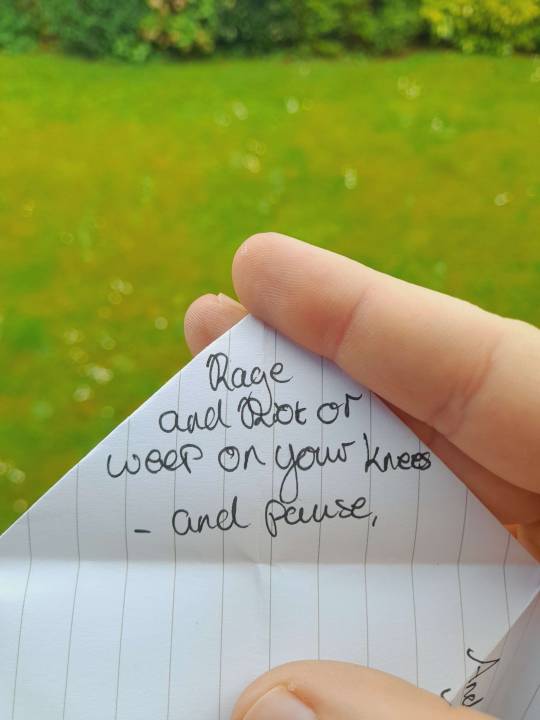 Rage
and Riot or
weep on your knees
- and pause,
And